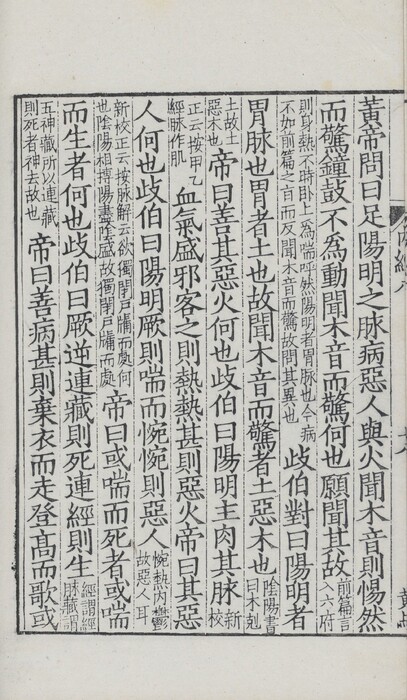 黃帝問曰足陽明之脉病惡人與火聞木音則惕然
而驚鐘鼓不為動聞木音而驚何也願聞其故前篇言入六府
則身熱不時卧上為喘呼然陽明者胃脉也今病不如前篇之㫖而反聞木音而驚故問其異也岐伯對曰陽明者
胃脉也胃者土也故聞木音而驚者土惡木也陰陽書曰木剋
土故土惡木也帝曰善其惡火何也歧伯曰陽明主肉其脉新校
正云按甲乙經脉作肌血氣盛邪客之則熱熱甚則惡火帝曰其惡
人何也歧伯曰陽明厥則喘而惋惋則惡人惋熱內鬱故惡人耳
新校正云按脉解云欲獨閉戸牖而處何也陰陽相搏陽盡陰盛故獨閉戸牖而處帝曰或喘而死者或喘
而生者何也歧伯曰厥逆連藏則死連經則生經謂經脉藏謂
五神藏所以連藏則死者神去故也帝曰善病甚則棄衣而走登高而歌或
內經八